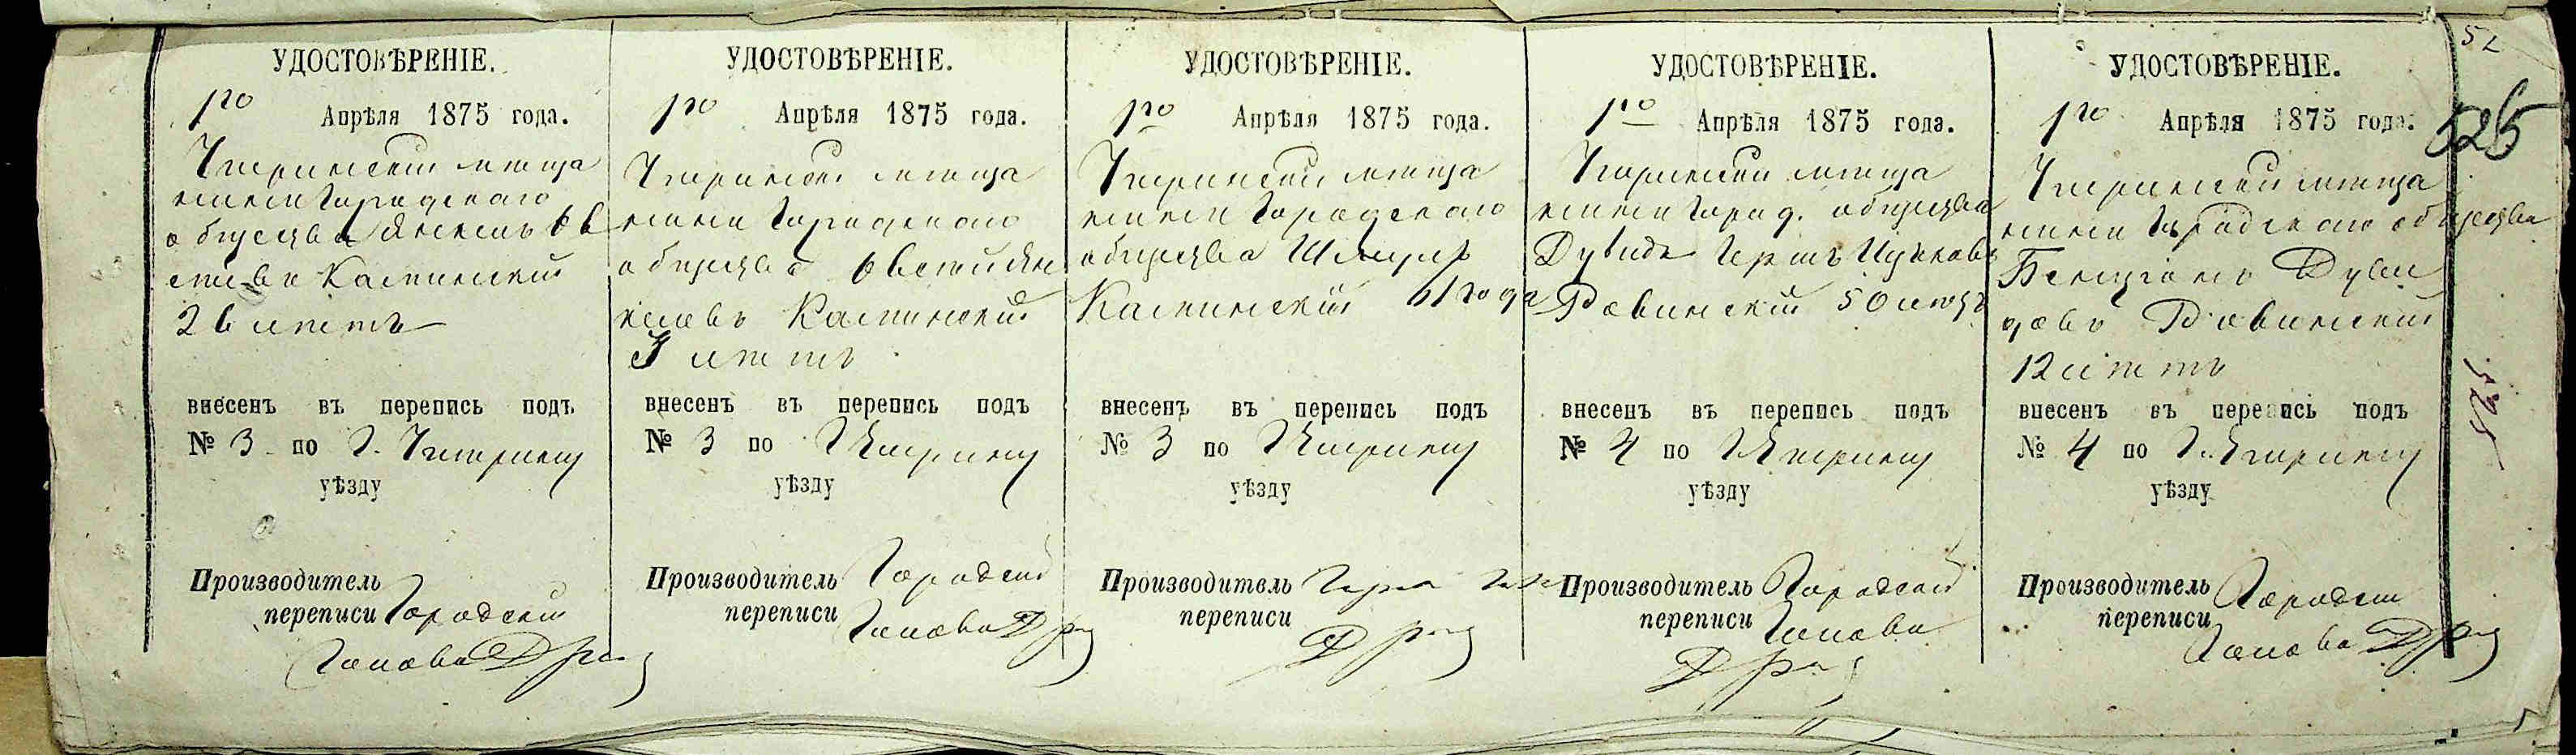 УДОСТОВѢРЕНІЕ.
1го Апрѣля 1875 года.
Чигиринскій мѣща
нинъ Городскаго
общества Янкель Ов
Калининскій
26 лѣтъ
внесенъ въ перепись подъ
№ 3 по г. Чигирину
уѣзду
Производитель
переписи Городской
Голова
УДОСТОВѢРЕНІЕ.
1го Апрѣля 1875 года.
Чигиринскій мѣща
нинъ Городскаго
общества Овсей Ян
келевъ
лѣтъ
внесенъ въ перепись подъ
№ 3 по Чигирину
уѣзду
Производитель Городской
переписи Голова
УДОСТОВѢРЕНІЕ.
1го Апрѣля 1875 года.
Чигиринскій мѣща
нинъ Городскаго
общества Шмуль
61 года
внесенъ въ перепись подъ
№ 3 по Чигирину
уѣзду
Производитель
переписи
УДОСТОВѢРЕНІЕ.
1го Апрѣля 1875 года.
Чигиринскій мѣща
нинъ Город. общества
Дувидъ Гершъ Ицковъ
Равинскій 50 лѣтъ
внесенъ въ перепись подъ
№ 4 по Чигирину
уѣзду
Производитель Городской
переписи Голова
УДОСТОВѢРЕНІЕ.
1го Апрѣля 1875 года.
Чигиринскій мѣща
нинъ Городскаго общества
Дуви
довъ Равинскій
12 лѣтъ
внесенъ въ перепись подъ
№ 4 по г. Чигирину
уѣзду
Производитель Городской
переписи Голова
52
525